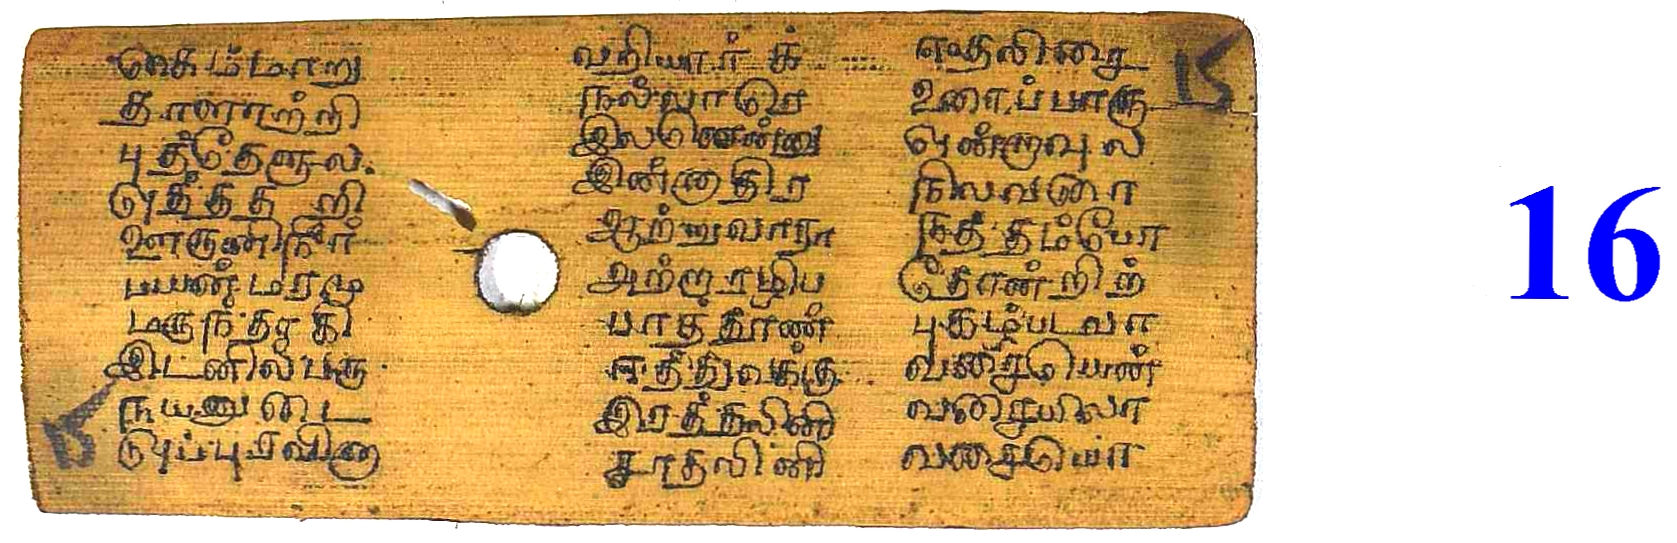 கைம்மாறு
தாளாற்றி
புத்தேளுல
ஒத்தத றி
ஊருணிநீர்
பயன்மரமு
மருந்தாகி
இடனில்பரு
நயனுடை
ஒப்புரவினா
வறியார் க்
நல்லாறெ
இலனென்னு
இன்னாதிர
ஆற்றுவாரா
அற்றாரழிப
பாத்தூண்
ஈத்துவக்கு
இரத்தலினி
சாதலினி
ஈதலிசை
உரைப்பாரு
ஒன்றாவுல
நிலவரை
நத்தம்போ
தோன்றிற்
புகழ்படவா
வசையென்
வசையிலா
வசையொ
15
15
16